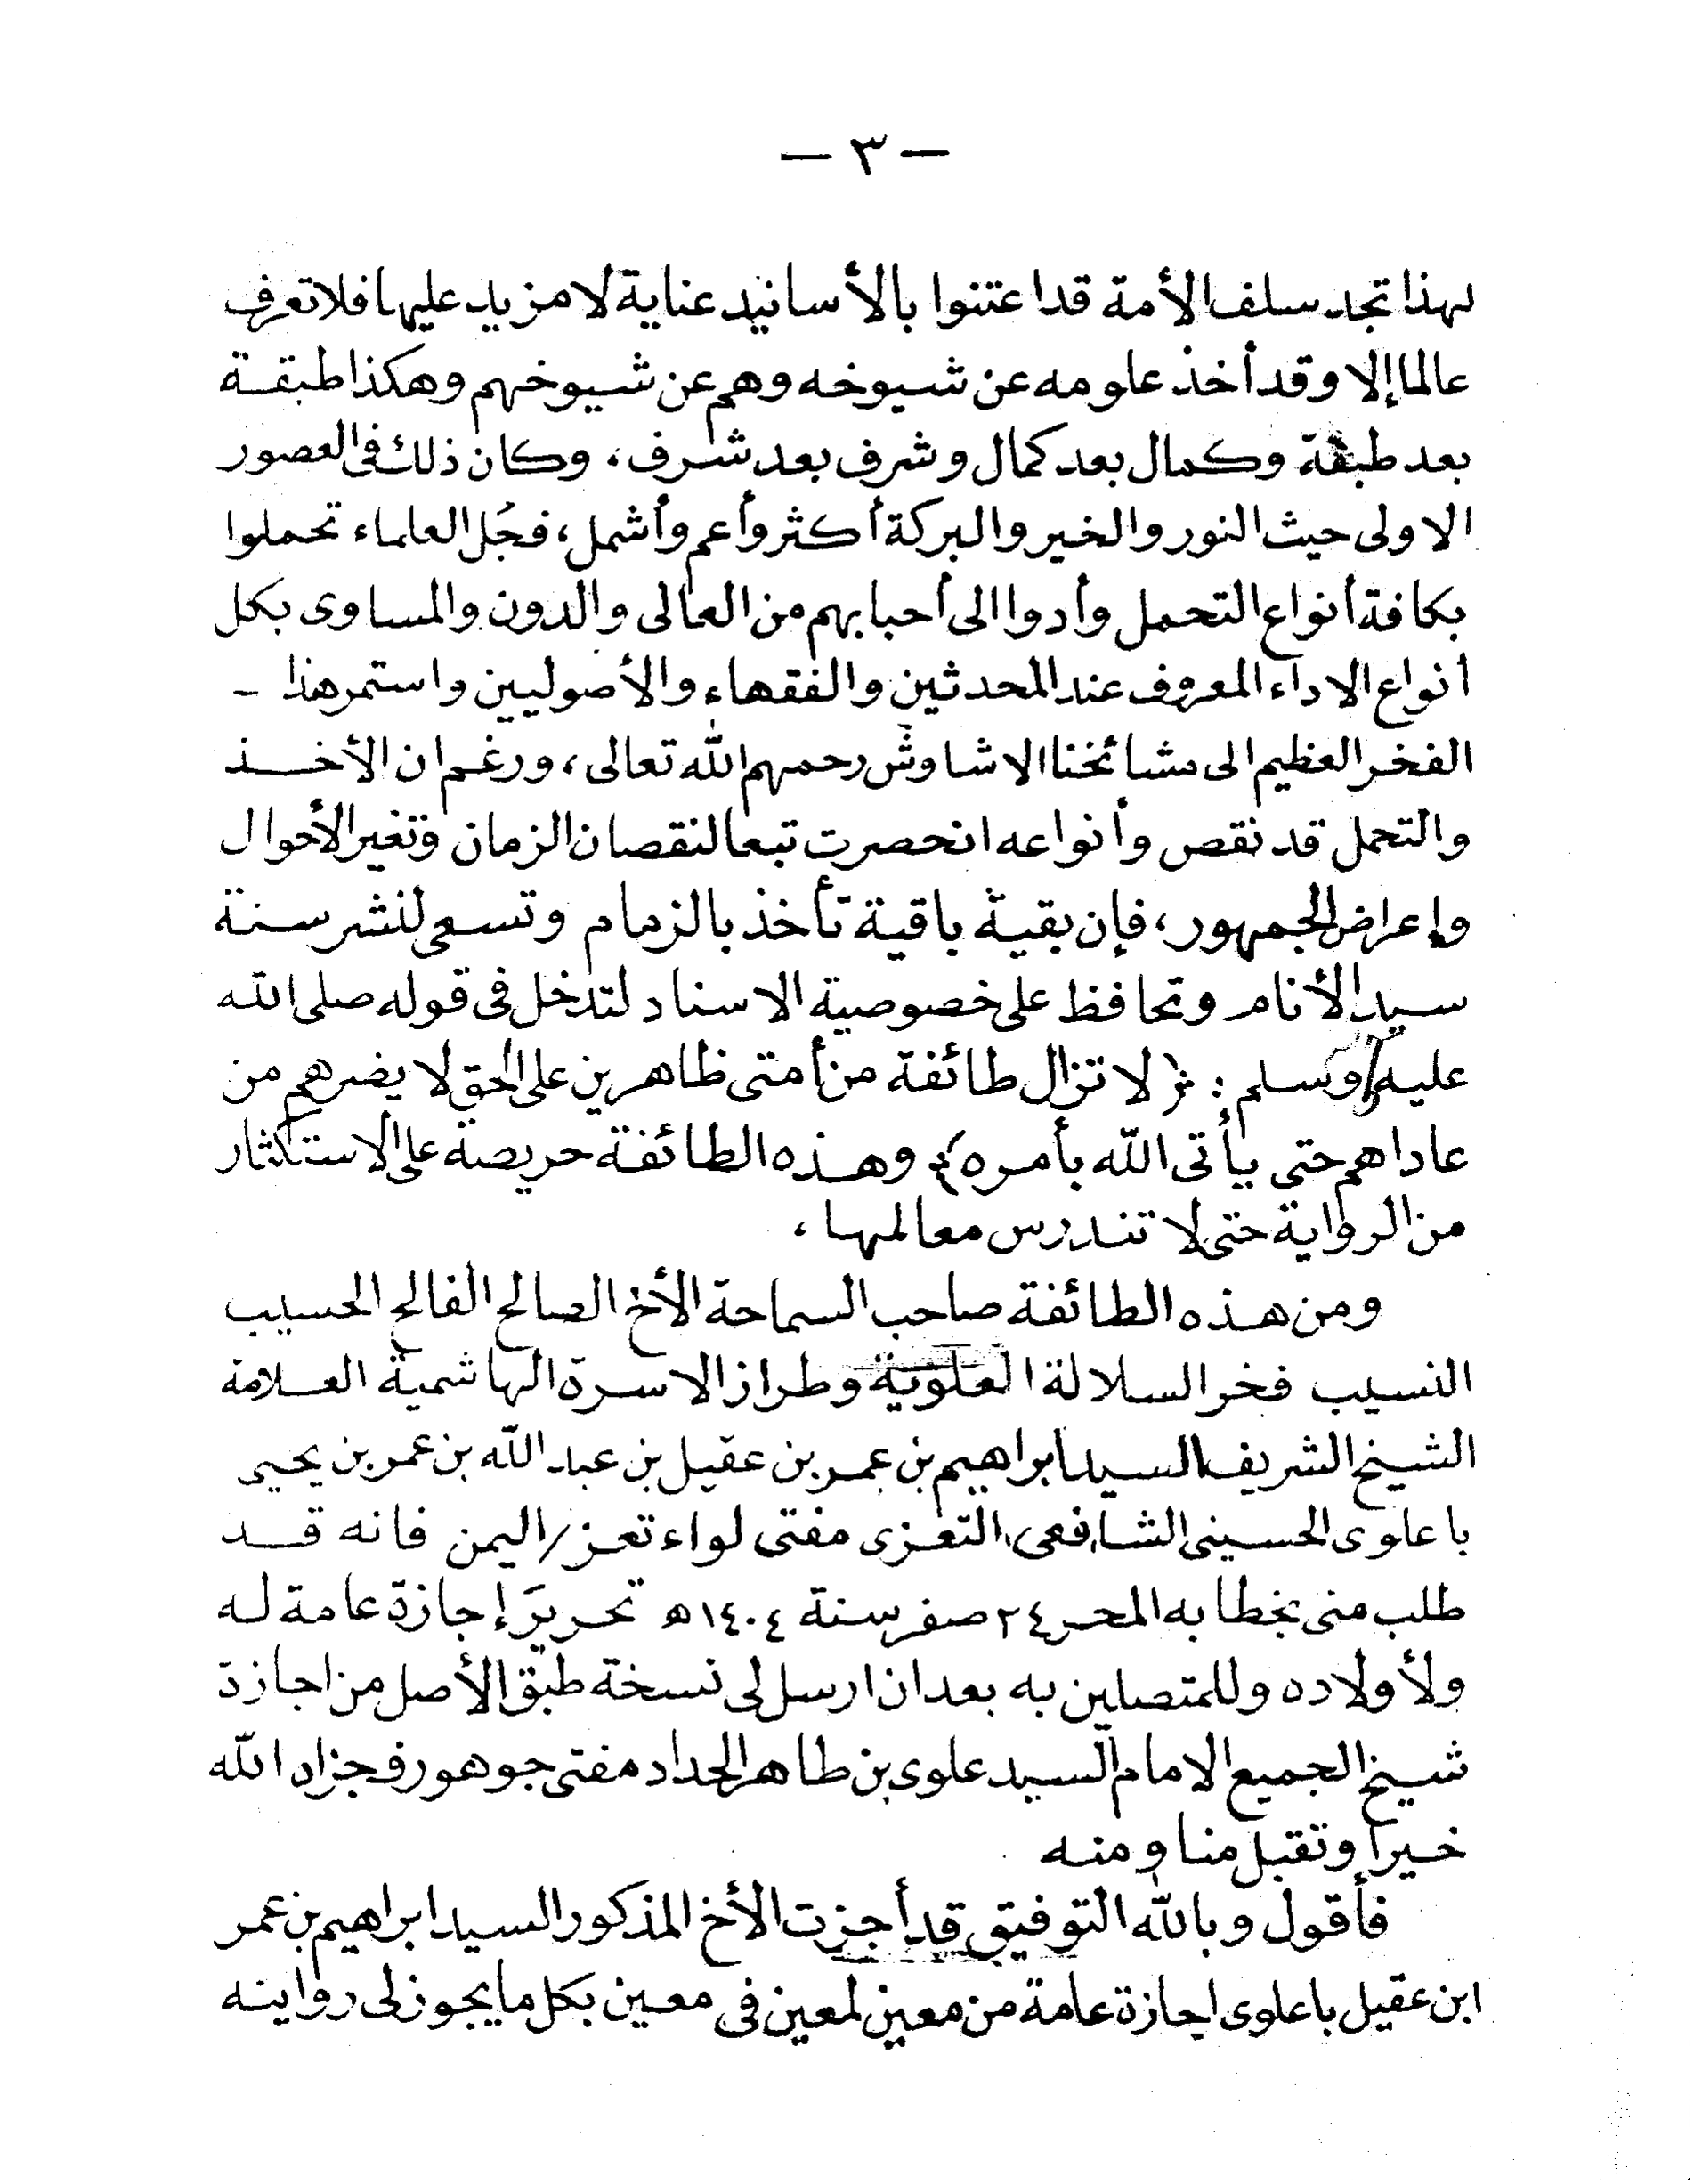 — ٣ —
لهذا تجد سلف الأمة قد اعتنوا بالأسانيد عناية لا مزيد عليها فلا تعرف
عالما إلا وقد أخذ علومه عن شيوخه وهم عن شيوخهم وهكذا طبقة
بعد طبقة وكمال بعد كمال وشرف بعد شرف، وكان ذلك في العصور
الاولى حيث النور والخير والبركة أكثر وأعم وأشمل، فجُل العلماء تحملوا
بكافة أنواع التحمل وأدوا الى أحبابهم من العالى والدون والمساوى بكل
أنواع الاداء المعروف عند المحدثين والفقهاء والأصوليين واستمر هذا -
الفخر العظيم الى مشائخنا الاشاوش رحمهم الله تعالى، ورغم ان الأخذ
والتحمل قد نقص وأنواعه انحصرت تبعا لنقصان الزمان وتغير الأحوال
وإعراض الجمهور، فإن بقية باقية تأخذ بالزمام وتسعى لنشر سنة
سيد الأنام وتحافظ على خصوصية الاسناد لتدخل في قوله صلى الله
عليه وسلم : { لا تزال طائفة من أمتى ظاهرين على الحق لا يضرهم من
عاداهم حتى يأتى الله بأمره } وهذه الطائفة حريصة على الاستكثار
من الرواية حتى لا تندرس معالمها،
ومن هذه الطائفة صاحب السماحة الأخ الصالح الفالح الحسيب
النسيب فخر السلالة العلوية وطراز الاسرة الهاشمية العلامة
الشيخ الشريف السيد ابراهيم بن عمر بن عقيل بن عبد الله بن عمر بن يحيى
باعلوى الحسينى الشافعى التعزى مفتى لواء تعز/اليمن فانه قد
طلب منى بخطابه المحرر ٢٤ صفر سنة ١٤٠٤ه تحريرَ إجازة عامة له
ولأولاده وللمتصلين به بعد ان ارسل لى نسخة طبق الأصل من اجازة
شيخ الجميع الامام السيد علوى بن طاهر الحداد مفتى جوهور فجزاه الله
خيرا وتقبل منا ومنه
فأقول وبالله التوفيق قد أجزت الأخ المذكور السيد ابراهيم بن عمر
ابن عقيل باعلوى اجازة عامة من معين لمعين في معين بكل ما يجوز لى روايته